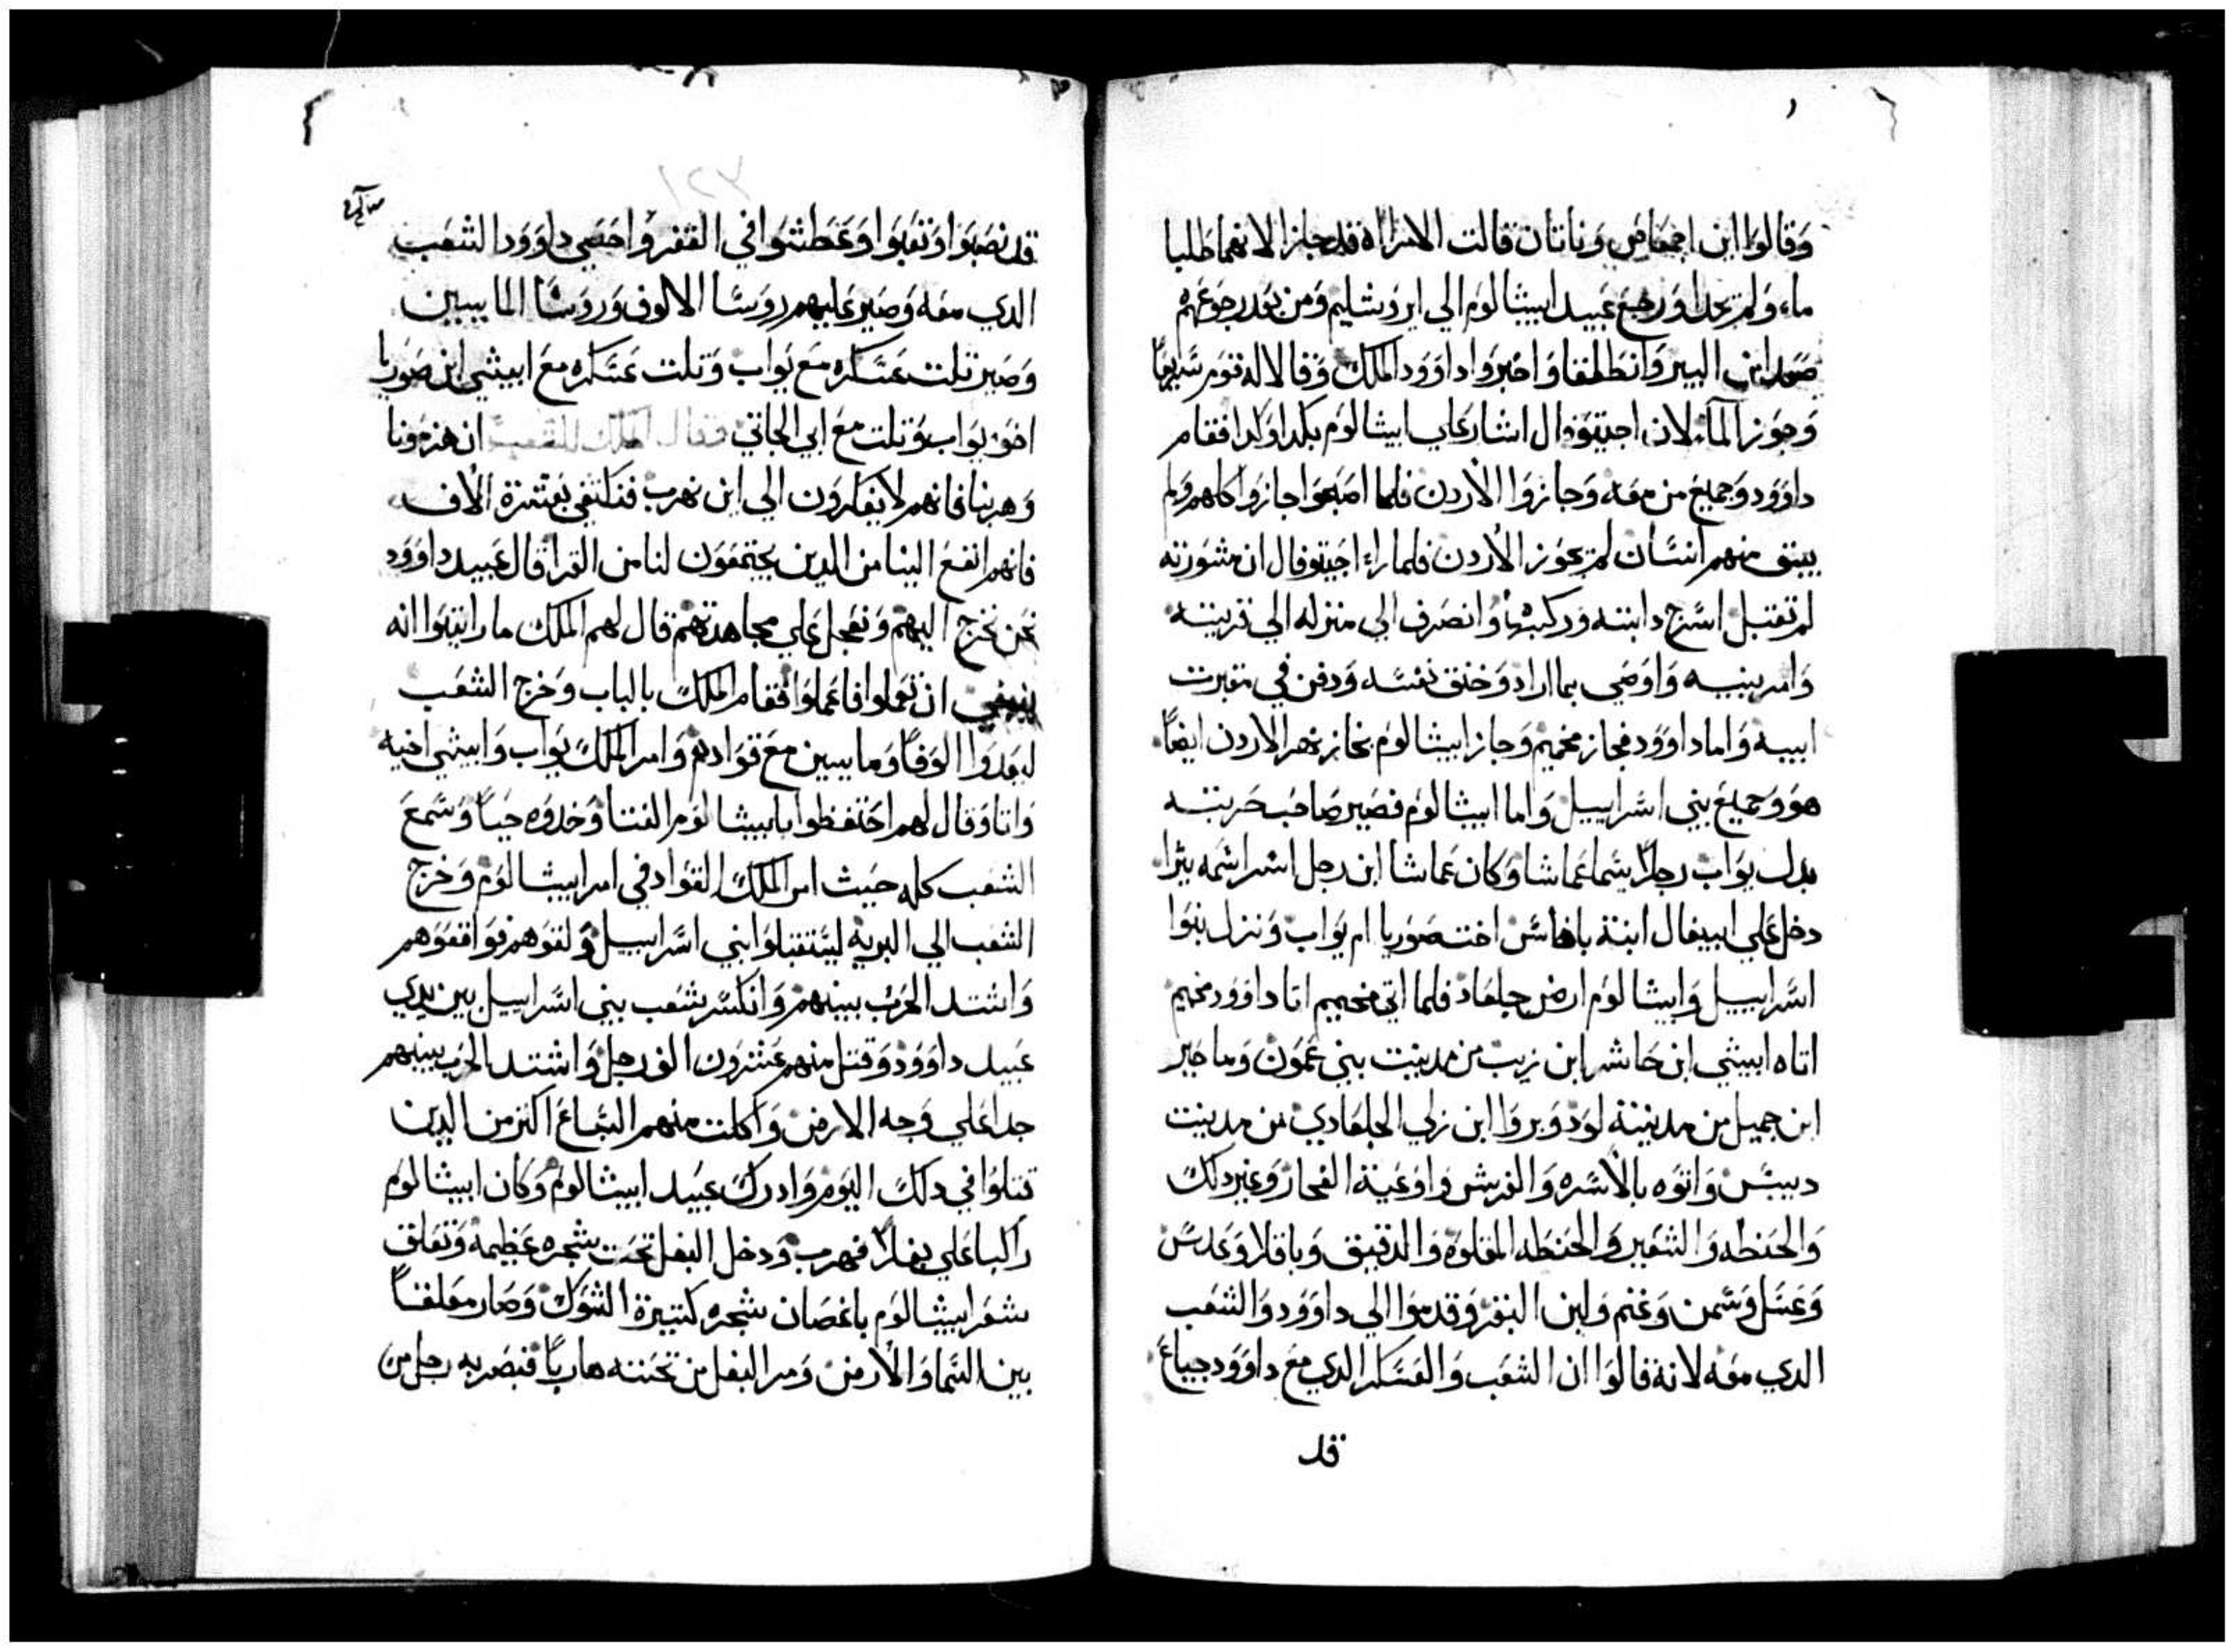 وقالوا اين احمعاص وناتان قالت الامراه قد جازا لانهما طلبا
ماء ولم يجدا ورجع عبيد ابيشالوم الي ايروشليم ومن بعد رجوعهم
صعدا من البير وانطلقا واخبروا داوود الملك وقالا له قوم سريعا
وجوز الماء لان اجيتوفال اشار علي ابيشالوم بكدا وكدا فقام
داوود وجميع من معه وجازوا الاردن فلما اصبحوا جازوا كلهم ولم
يبق منهم انسان لم يجوز الاردن فلما راء اجيتوفال ان مشورته
لم تقبل اسرج دابته وركبها وانصرف الي منزله الي قريته
وامر بنيه واوصي بما اراد وخنق نفسه ودفن في مقبرت
ابيه واما داوود فجاز مخميم وجاز ابيشالوم بجاز نهر الاردن ايضا
هو وجميع بني اسراييل واما ابيشالوم فصير صاحب حربته
بدل يواب رجلا يسما عماشا وكان عماشا ابن رجل اسراسمه يثرا
دخل علي ابيغال ابنة باحاش اخت صوريا ام يواب ونزل بنوا
اسراييل وابيشالوم ارض جلعاد فلما اتي مخميم اتا داوود مخميم
اتاه ابيشي ابن حاشر ابن زيب من مدينت بني عمون وماخير
ابن جميل من مدينة لودوبر وا ابن زلي الجلعادي من مدينت
دبيس واتوه بالاسره والفرش واوعية الفخار وغير دلك
والحنطه والشعير والحنطه المقلوه والدقيق وباقلا وعدس
وعسل وسمن وغنم ولبن البقر وقدموا الي داوود والشعب
الدي معه لانه قالوا ان الشعب والعسكر الدي مع داوود جياع
قد
قد نصبوا وتعبوا وعطشوا في القفر واحصي داوود الشعب
الدي معه وصير عليهم روسا الالوف وروسا المايبين
وصير تلت عسكره مع يواب وتلت عسكره مع ابيشي ابن صوريا
اخو يواب وتلت مع اتي الجاتي فقال الملك للشعب ان هزمونا
وهربنا فانهم لا يفكرون الي اين نهرب فنكتفي بعشرة الاف
فانهم انفع الينا من الدين يجتمعون لنا من القرا قال عبيد داوود
نحن نخرج اليهم ونعجل علي مجاهدتهم قال لهم الملك ما رايتوا انه
ينبغي ان تعملوا فاعملوا فقام الملك بالباب وخرج الشعب
ليعدوا الوفا ومايبين مع قوادهم وامر الملك يواب وابيشي اخيه
واتا وقال لهم احتفظوا بابيشالوم الفتا وخدوه حيا وسمع
الشعب كله حيث امر الملك القواد في امر ابيشالوم وخرج
الشعب الي البريه ليستقبلوا بني اسراييل ولقوهم فواقعوهم
واشتد الحرب بينهم وانكسر شعب بني اسراييل بين يدي
عبيد داوود وقتل منهم عشرون الف رجل واشتد الحرب بينهم
جدا علي وجه الارض واكلت منهم السباع اكتر من الدين
قتلوا في دلك اليوم وادرك عبيد ابيشالوم وكان ابيشالوم
راكبا علي بغلا فهرب ودخل البغل تحت شجره عظيمه وتعلق
شعر ابيشالوم باغصان شجره كتيرة الشوك وصار معلقا
بين السما والارض ومر البغل من تحته هاربا فبصر به رجل من